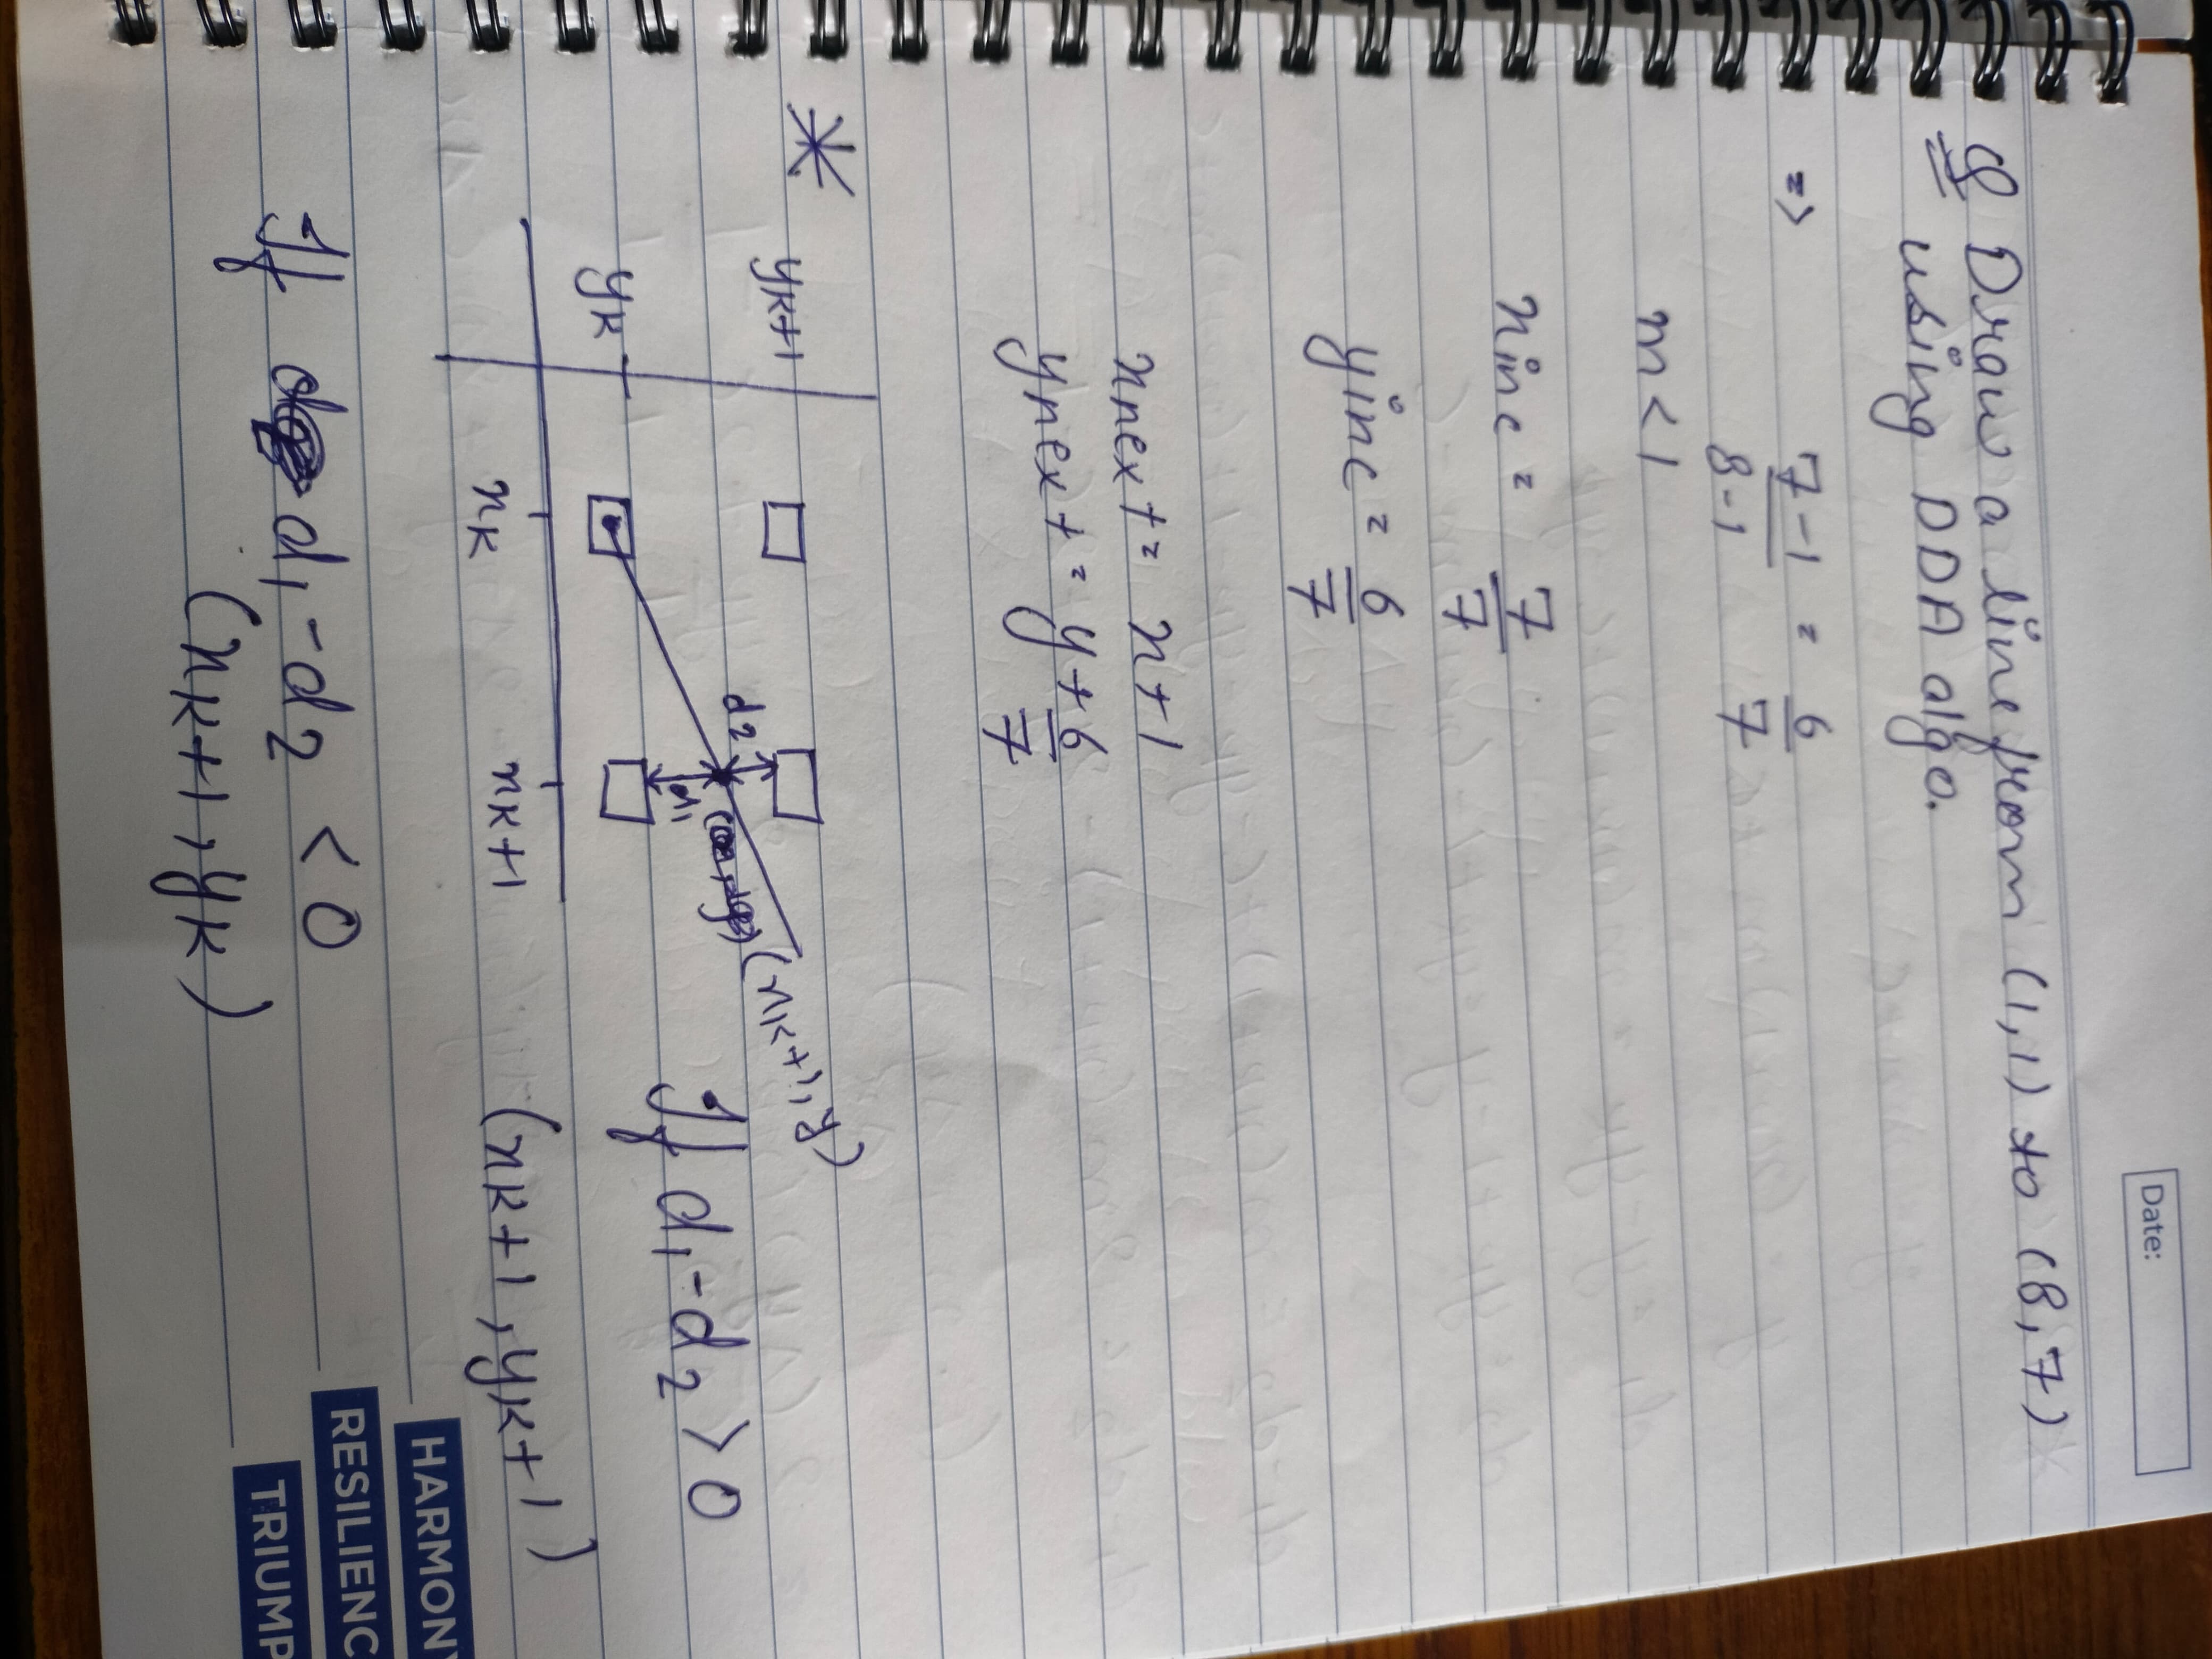 Date:
Q Draw a line from (1,1) to (8,7)
using DDA algo.
=> 7-1 = 6
8-1 7
m < 1
xinc = 7
7
yinc = 6
7
xnext = x+1
ynext = y+6
7
*
yk+1
d2
(xk+1, y)
d1
yk
If d1-d2 > 0
xk xk+1
(xk+1, yk+1)
If d1-d2 < 0
(xk+1, yk)
HARMONY
RESILIENC
TRIUMP